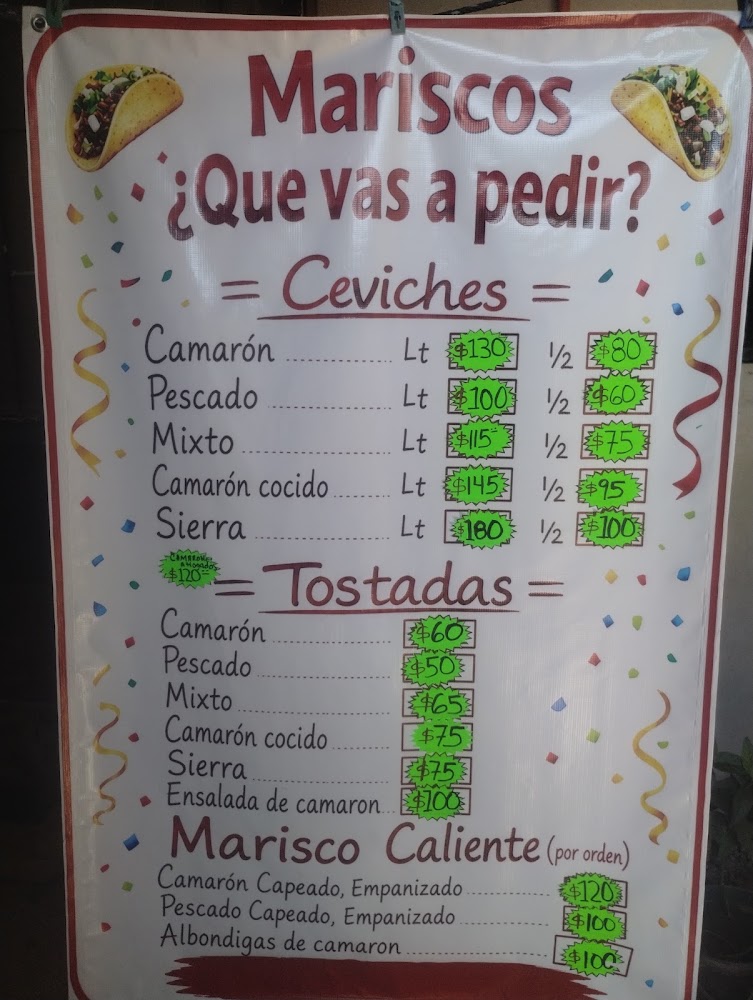 Mariscos
¿Que vas a pedir?
= Ceviches =
Camarón ............... Lt $130 1/2 $80
Pescado ............... Lt $100 1/2 $60
Mixto ............... Lt $115 1/2 $75
Camarón cocido ........ Lt $145 1/2 $95
Sierra ............... Lt $180 1/2 $100
CAMARONES
AHOGADOS
$120
= Tostadas =
Camarón ............... $60
Pescado ............... $50
Mixto ............... $65
Camarón cocido ........ $75
Sierra ............... $75
Ensalada de camaron... $100
Marisco Caliente (por orden)
Camarón Capeado, Empanizado ............ $120
Pescado Capeado, Empanizado ............ $100
Albondigas de camaron ............ $100